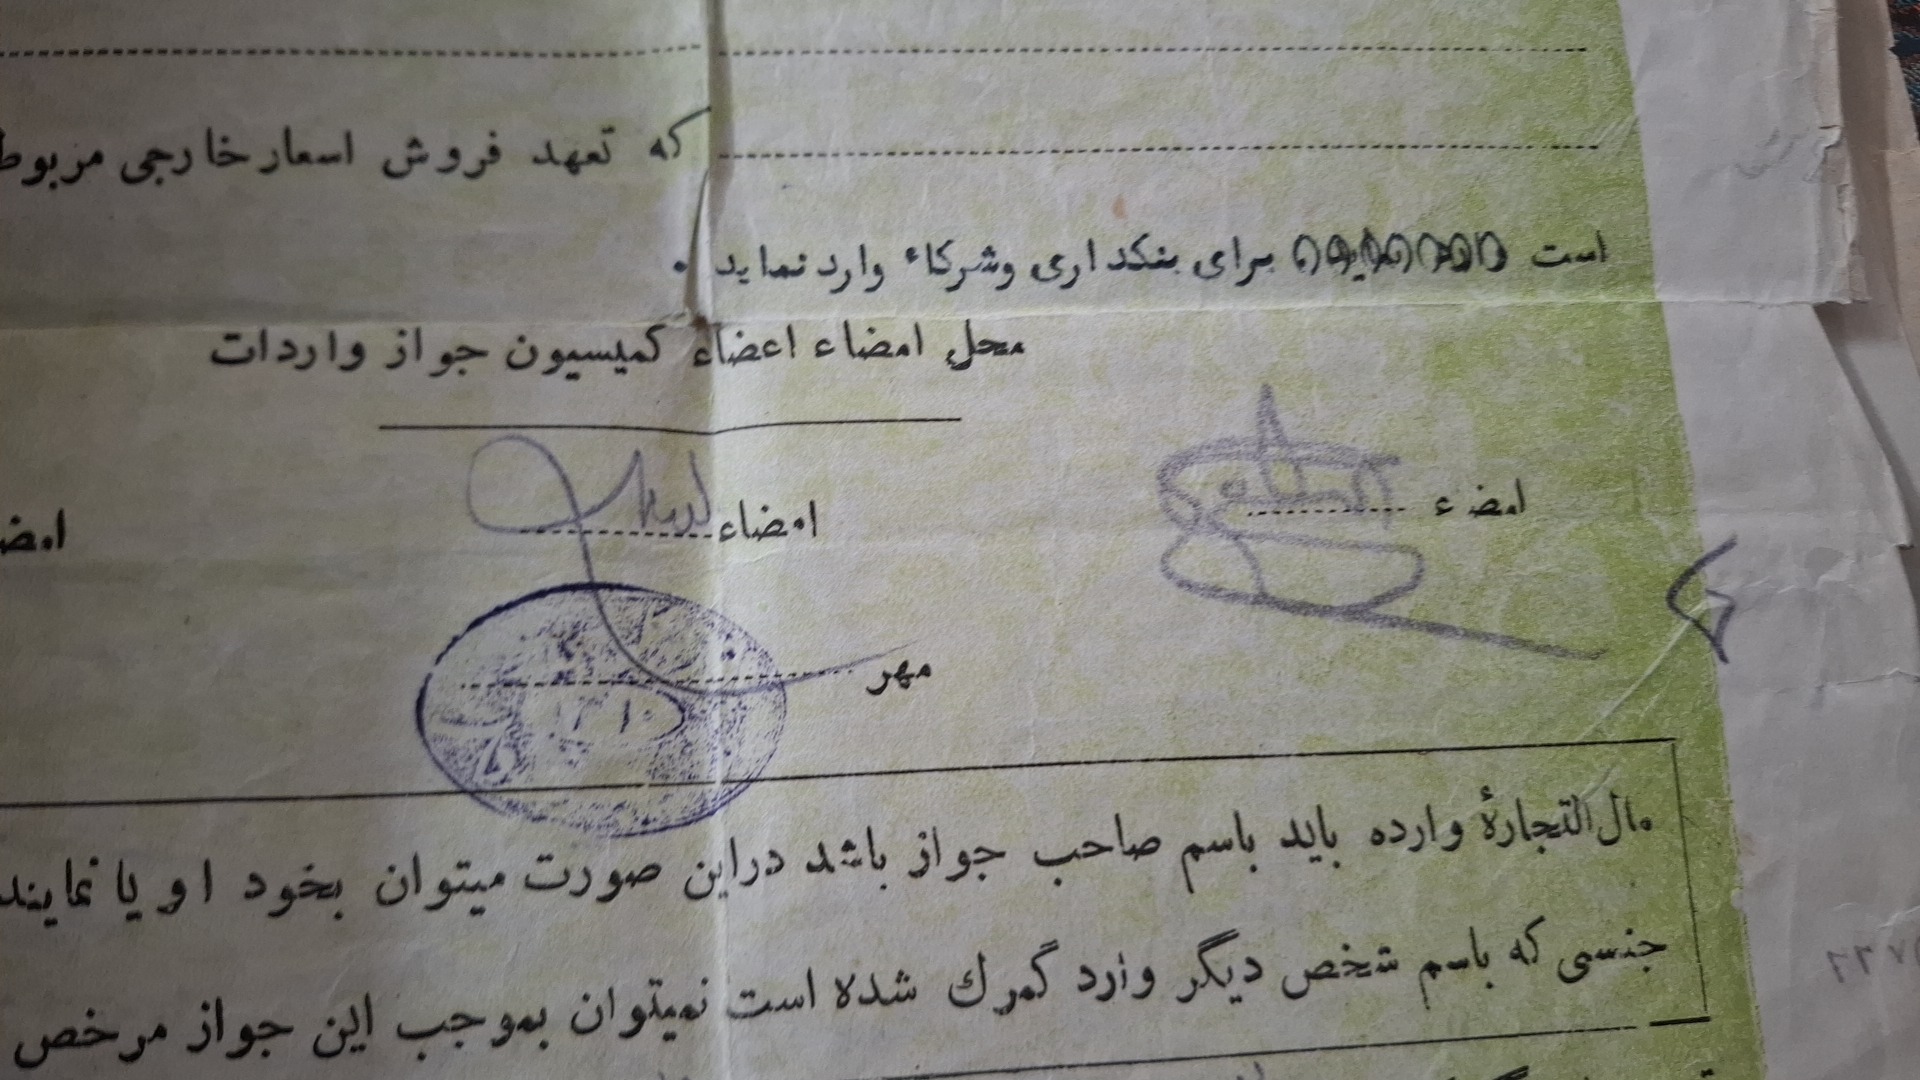 که تعهد فروش اسعار خارجی مربوط
است برای بنکداری وشرکاء وارد نماید .
محل امضاء اعضاء کمیسیون جواز واردات
امضء امضاء امض
مهر
۱۳۱۰
مال التجارهٔ وارده باید باسم صاحب جواز باشد دراین صورت میتوان بخود او یا نمایند
جنسی که باسم شخص دیگر وارد گمرك شده است نمیتوان بموجب این جواز مرخص